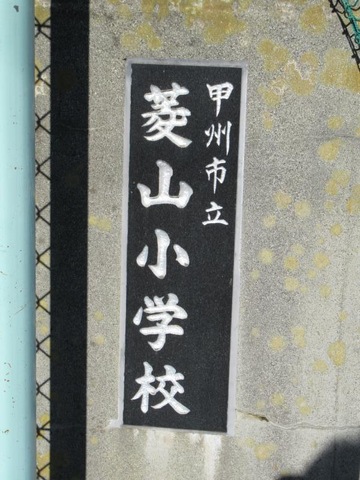 甲州市立
菱山小学校